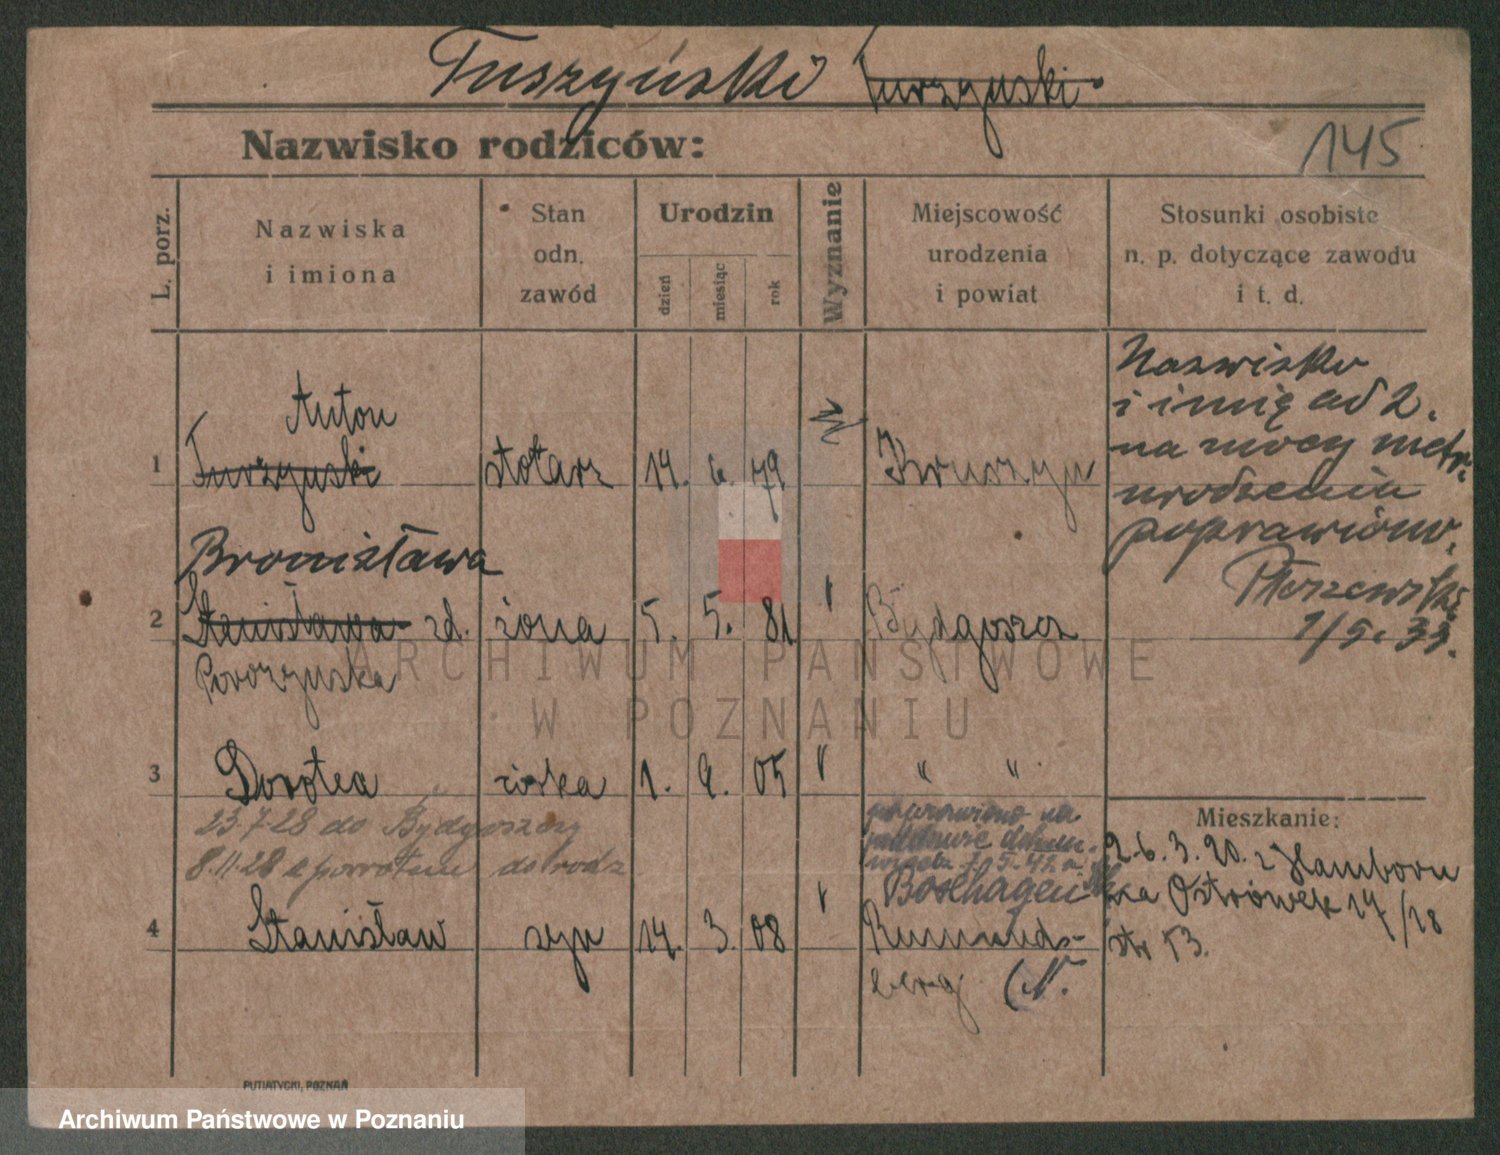 Tuszyński Turzyński
Nazwisko rodziców:
145
L. porz.
Nazwiska
i imiona
Stan
odn.
zawód
Urodzin
dzień
miesiąc
rok
Wyznanie
Miejscowość
urodzenia
i powiat
Stosunki osobiste
n. p. dotyczące zawodu
i t. d.
Nazwisko
i imię ad 2.
na mocy metr.
urodzenia
poprawiono.
1/5. 33.
Anton
1 Turzyński stolarz 14. 6. 79
Bronisława
2 Stanisława zd. żona 5. 5. 81 Bydgoszcz
3 Dorotea córka 1. 05 " "
23.7.28 do Bydgoszczy
8.11.28 z powrotem do rodz
poprawiono na
podstawie
4 Stanisław syn 14. 3. 08
Mieszkanie:
2.6.3.20. z Hamborn
na Ostrówek 17/18
str 53.
ARCHIWUM PAŃSTWOWE
W POZNANIU
PUTIATYCKI, POZNAŃ
Archiwum Państwowe w Poznaniu